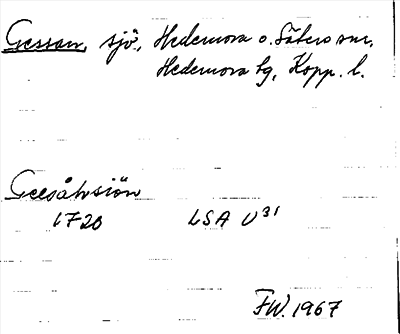 Gessan, sjö, Hedemora o. Säters snr,
Hedemora tg, Kopp. l.
Geesåhrsiön
1720 LSA U31
FW. 1967